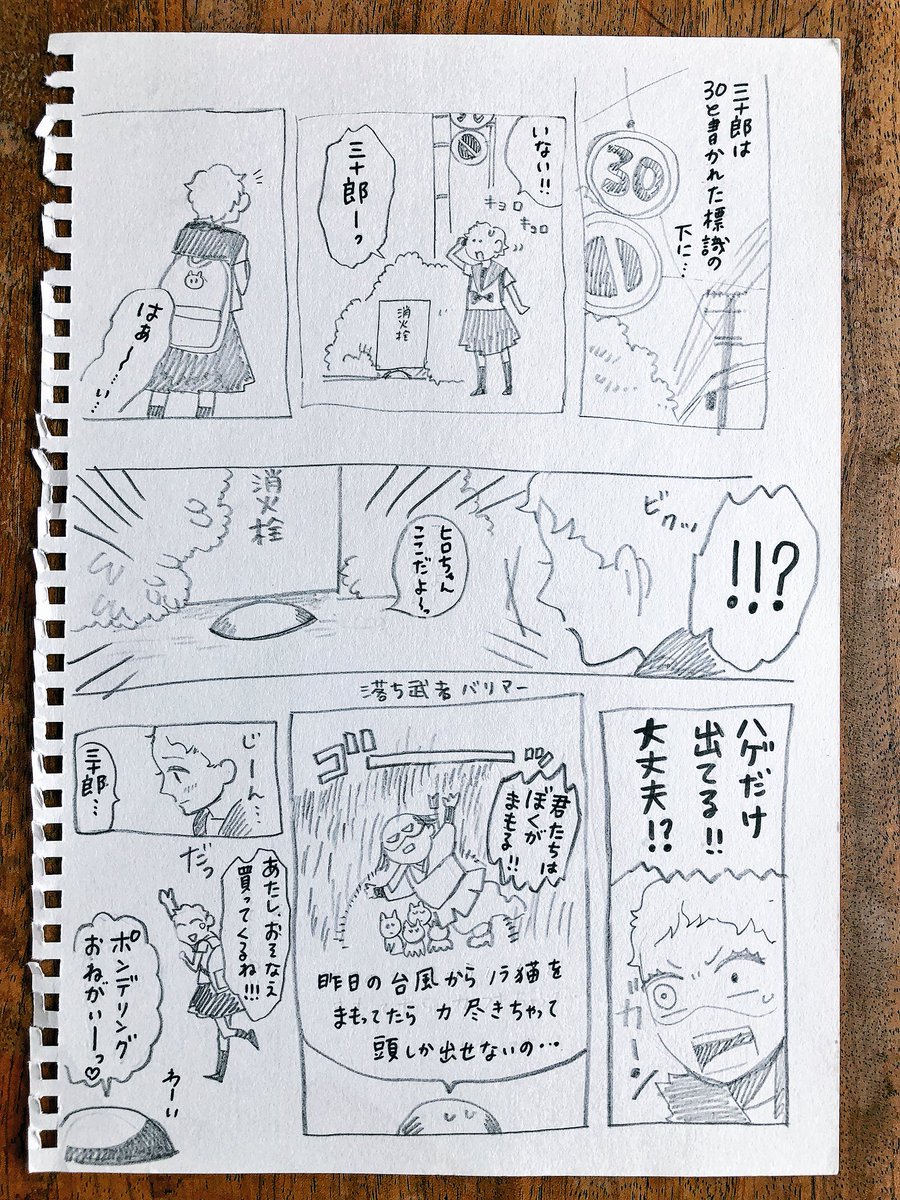 三十郎は
30と書かれた標識の
下に…
30
いない!!
キョロ
キョロ
三十郎ーっ
消火栓
はぁ〜…い…
!!?
ビクッ
ヒロちゃん
ここだよ〜っ
消火栓
ハゲだけ
出てる!!
大丈夫!?
ガーン
落ち武者バリアー
ゴーッ
君たちは
ぼくが
まもる!!
昨日の台風からノラ猫を
まもってたら力尽きちゃって
頭しか出せないの…
じーん…
三十郎…
だっ
あたし、おそなえ
買ってくるね!!!
ポンデリング
おねがいーっ♡
わーい